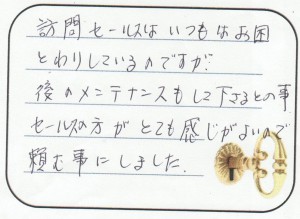 訪問セールスはいつもはお困
とわりしているのですが
後のメンテナンスもして下さるとの事
セールスの方がとても感じがよいので
頼む事にしました.